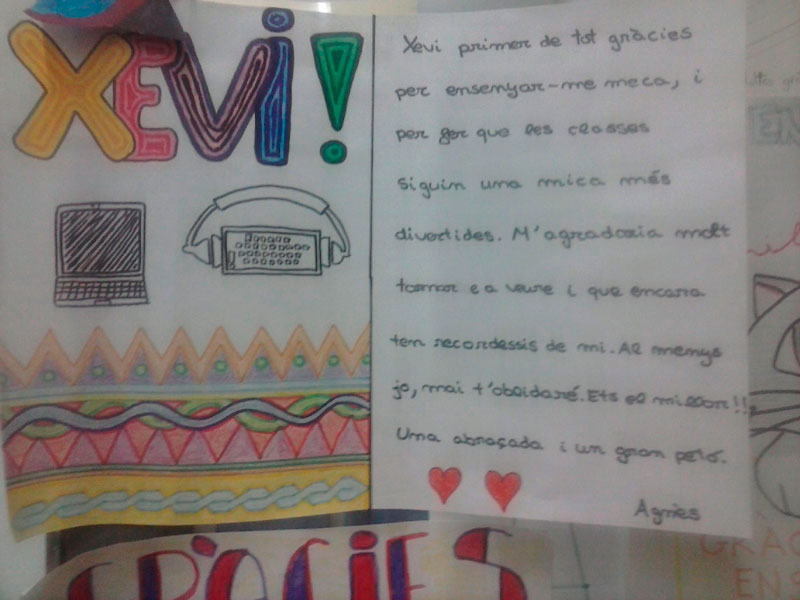 XEVi!
Xevi primer de tot gràcies
per ensenyar-me meca, i
per fer que les classes
siguin una mica més
divertides. M'agradaria molt
tornar e a veure i que encara
ten recordessis de mi. Al menys
jo, mai t'oblidaré. Ets el millor!!
Una abraçada i un gran petó.
Agnès
GRÀCIES
GRÀC
ENS